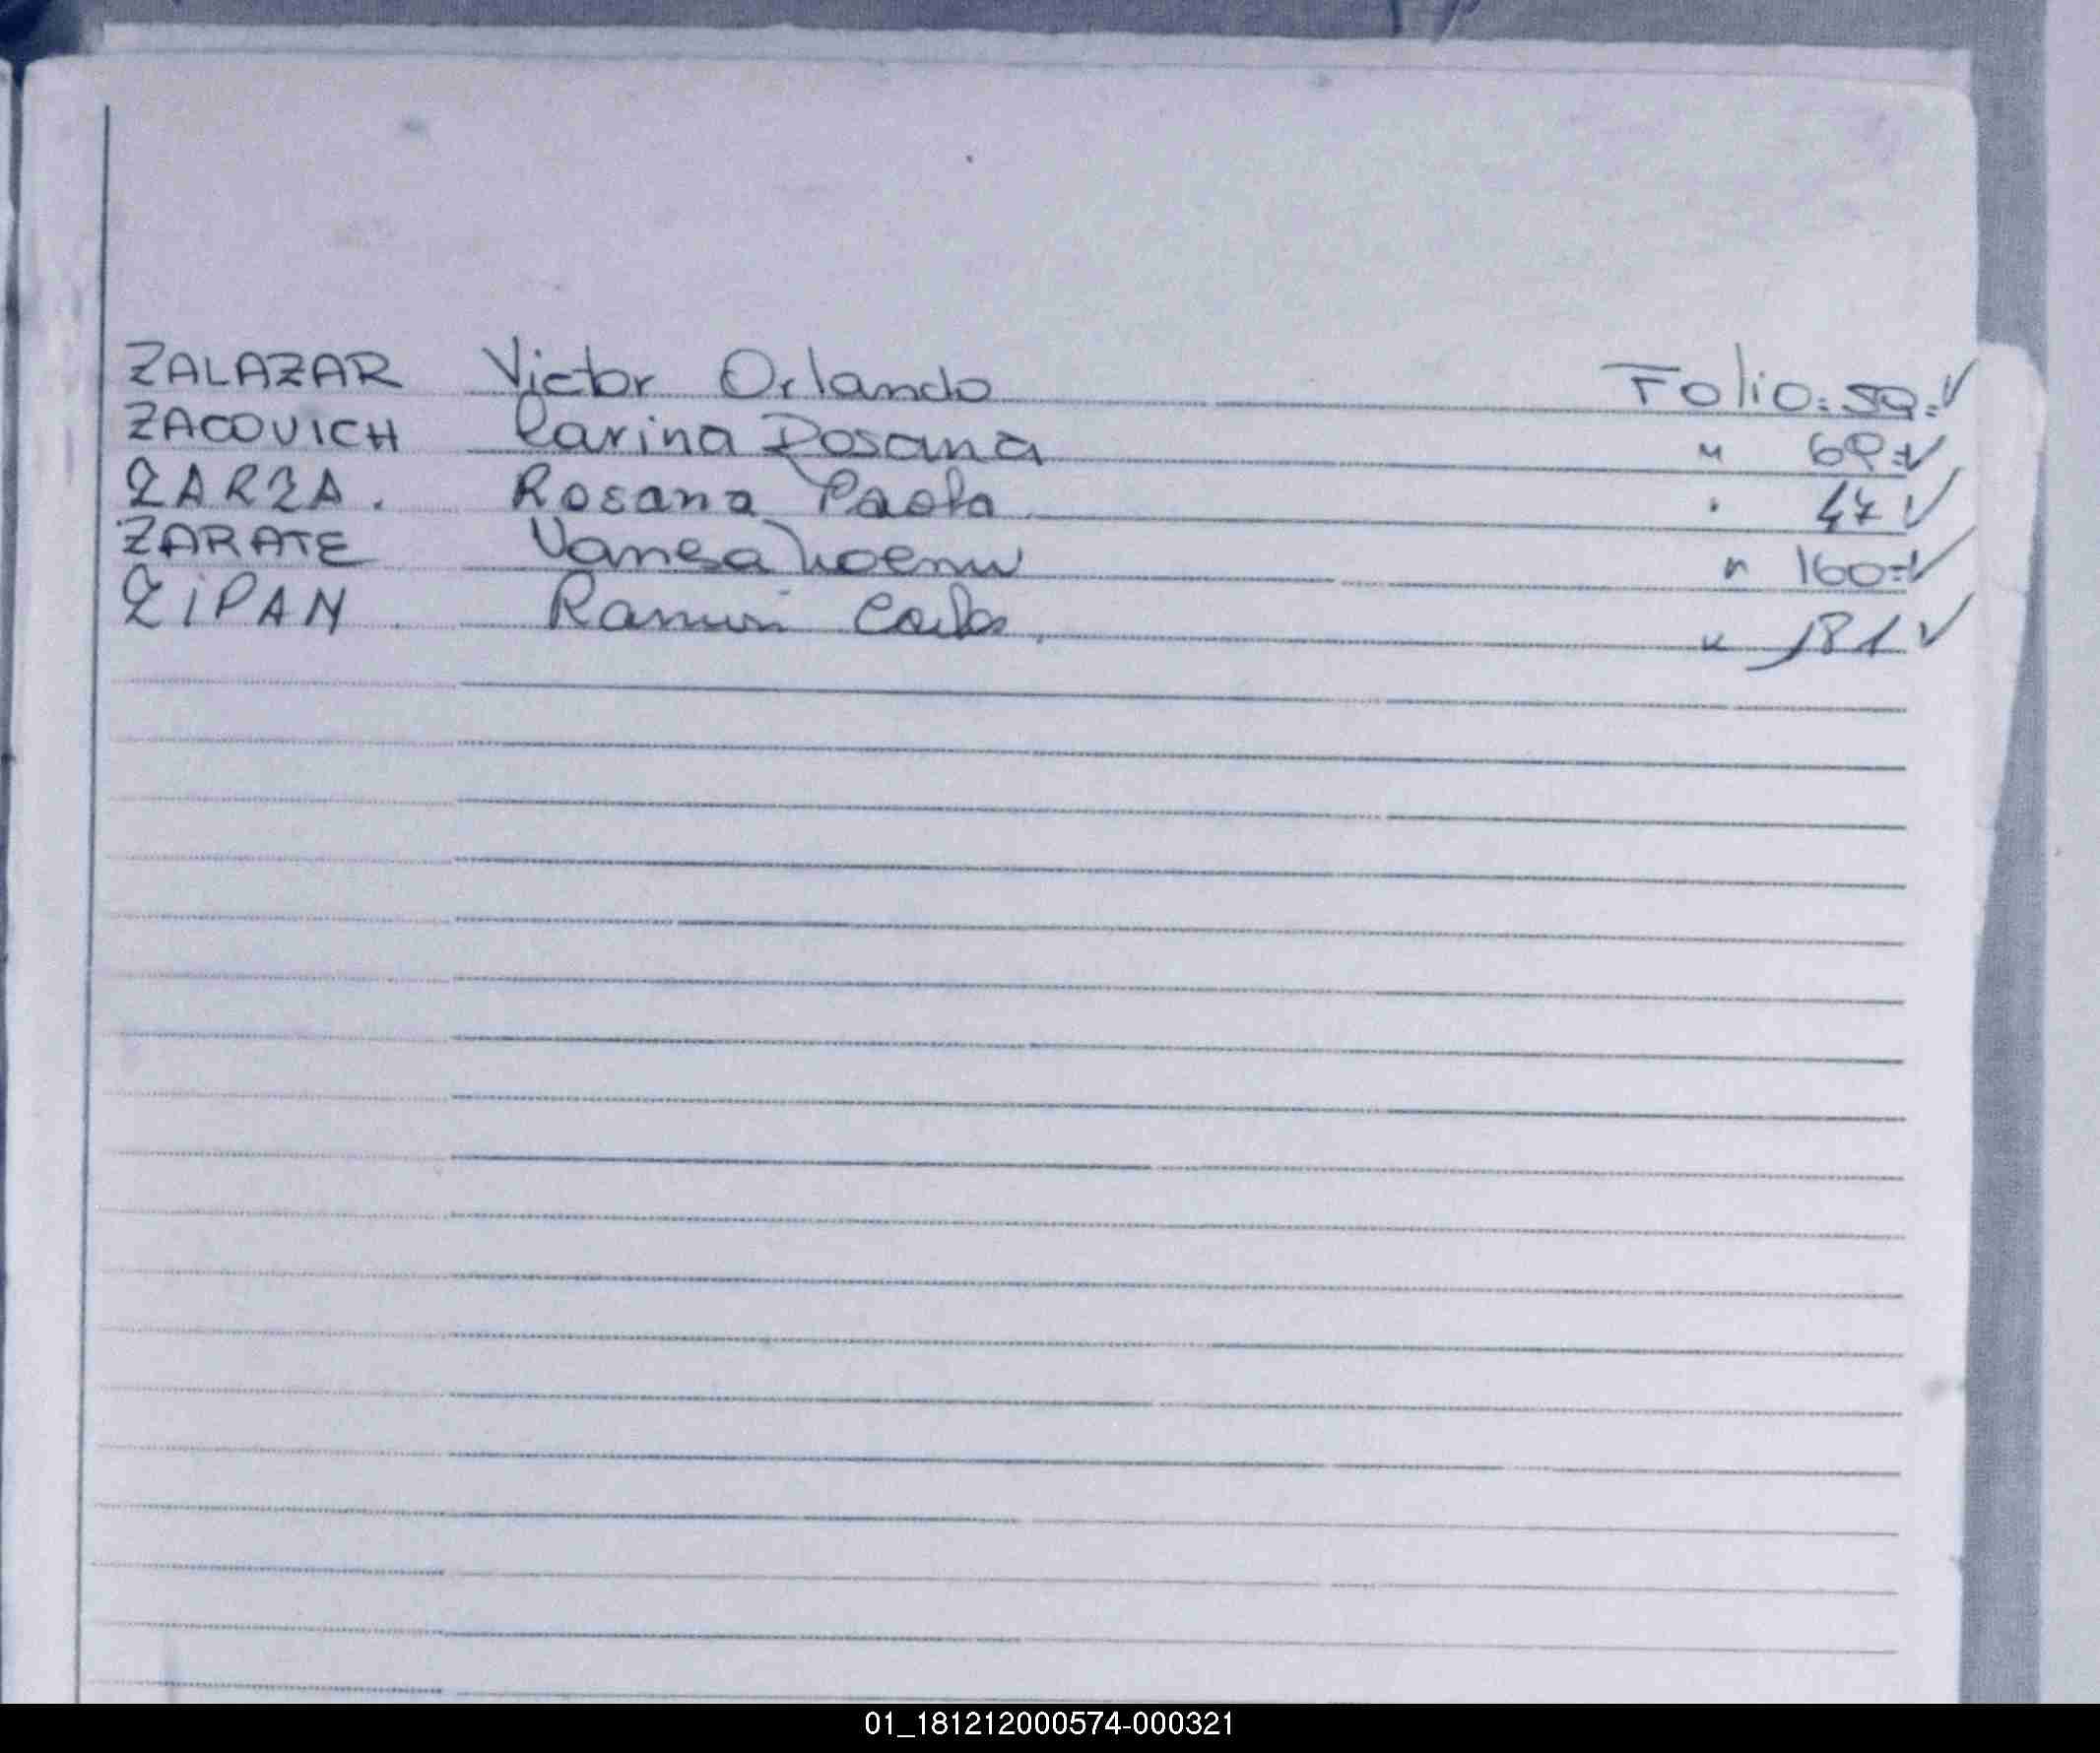 ZALAZAR Victor Orlando Folio: 59.✓
ZACOVICH Carina Rosana " 69 ✓
ZARZA. Rosana Paola " 47 ✓
ZARATE Vanesa Noemi " 160 ✓
ZIPAN Ramon Carlos. " 181 ✓
01_181212000574-000321